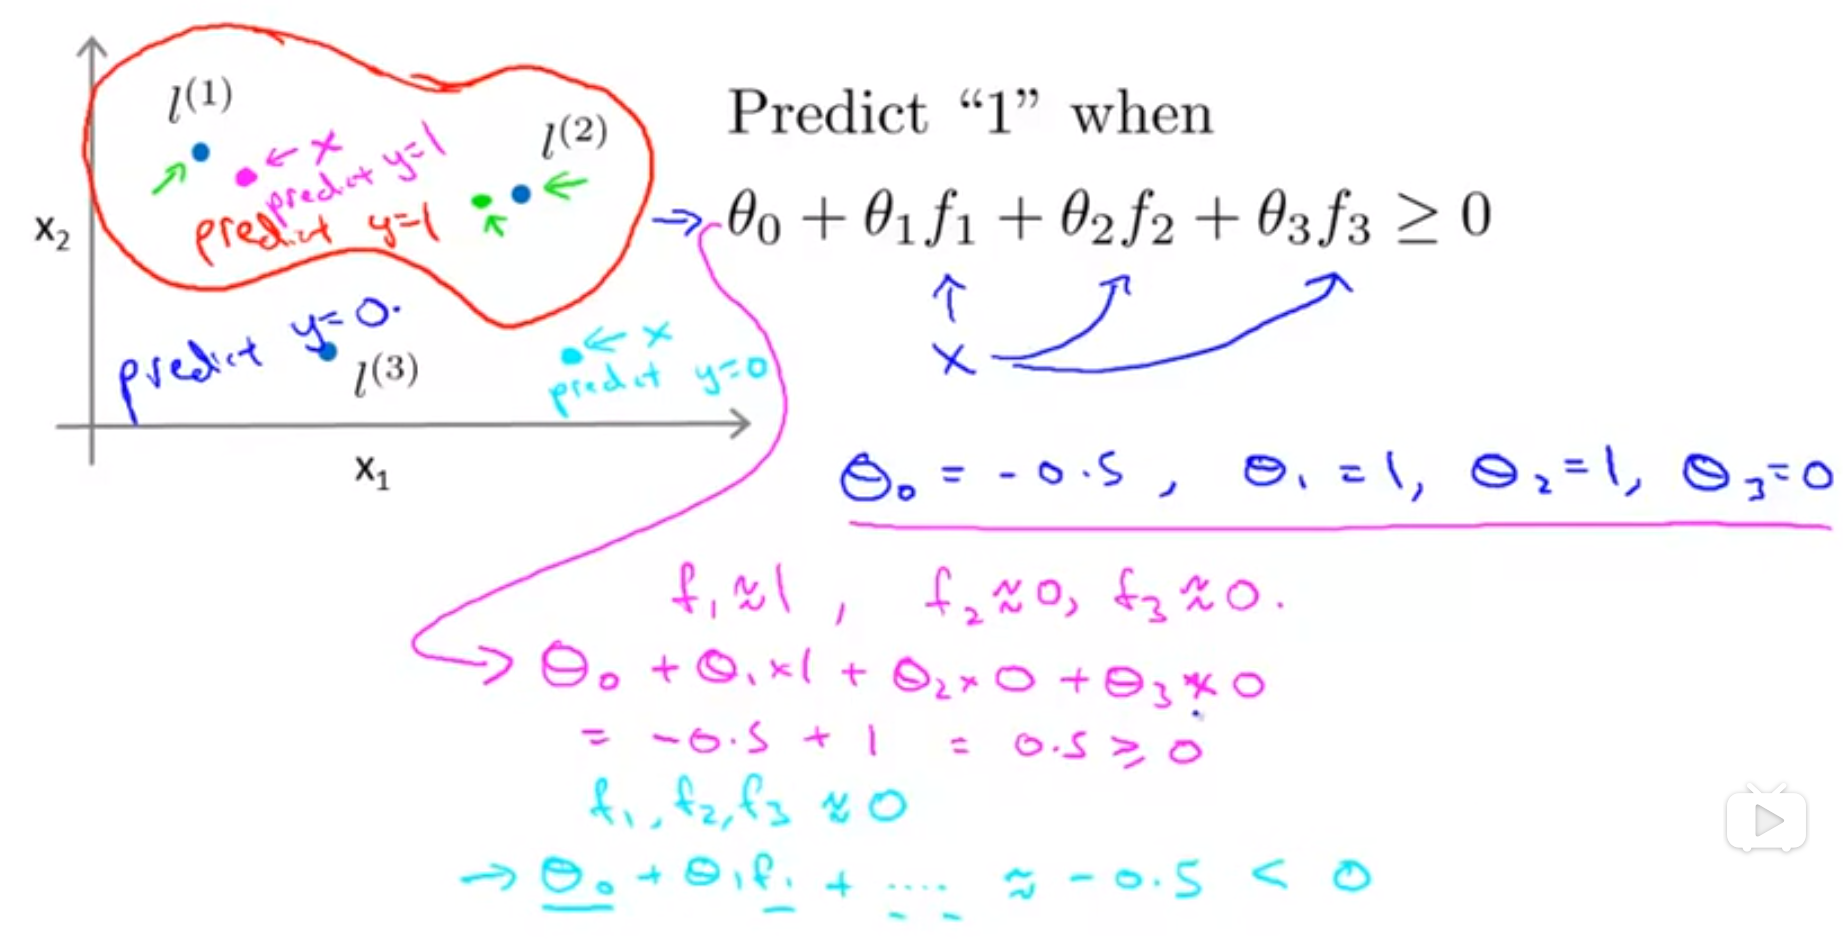 l⁽¹⁾
l⁽²⁾
← x
predict y=1
predict y=1
x₂
predict y=0.
l⁽³⁾
← x
predict y=0
x₁
Predict “1” when
→ θ₀ + θ₁f₁ + θ₂f₂ + θ₃f₃ ≥ 0
x
θ₀ = -0.5, θ₁ = 1, θ₂ = 1, θ₃ = 0
f₁ ≈ 1, f₂ ≈ 0, f₃ ≈ 0.
→ θ₀ + θ₁×1 + θ₂×0 + θ₃×0
= -0.5 + 1 = 0.5 ≥ 0
f₁, f₂, f₃ ≈ 0
→ θ₀ + θ₁f₁ + .... ≈ -0.5 < 0